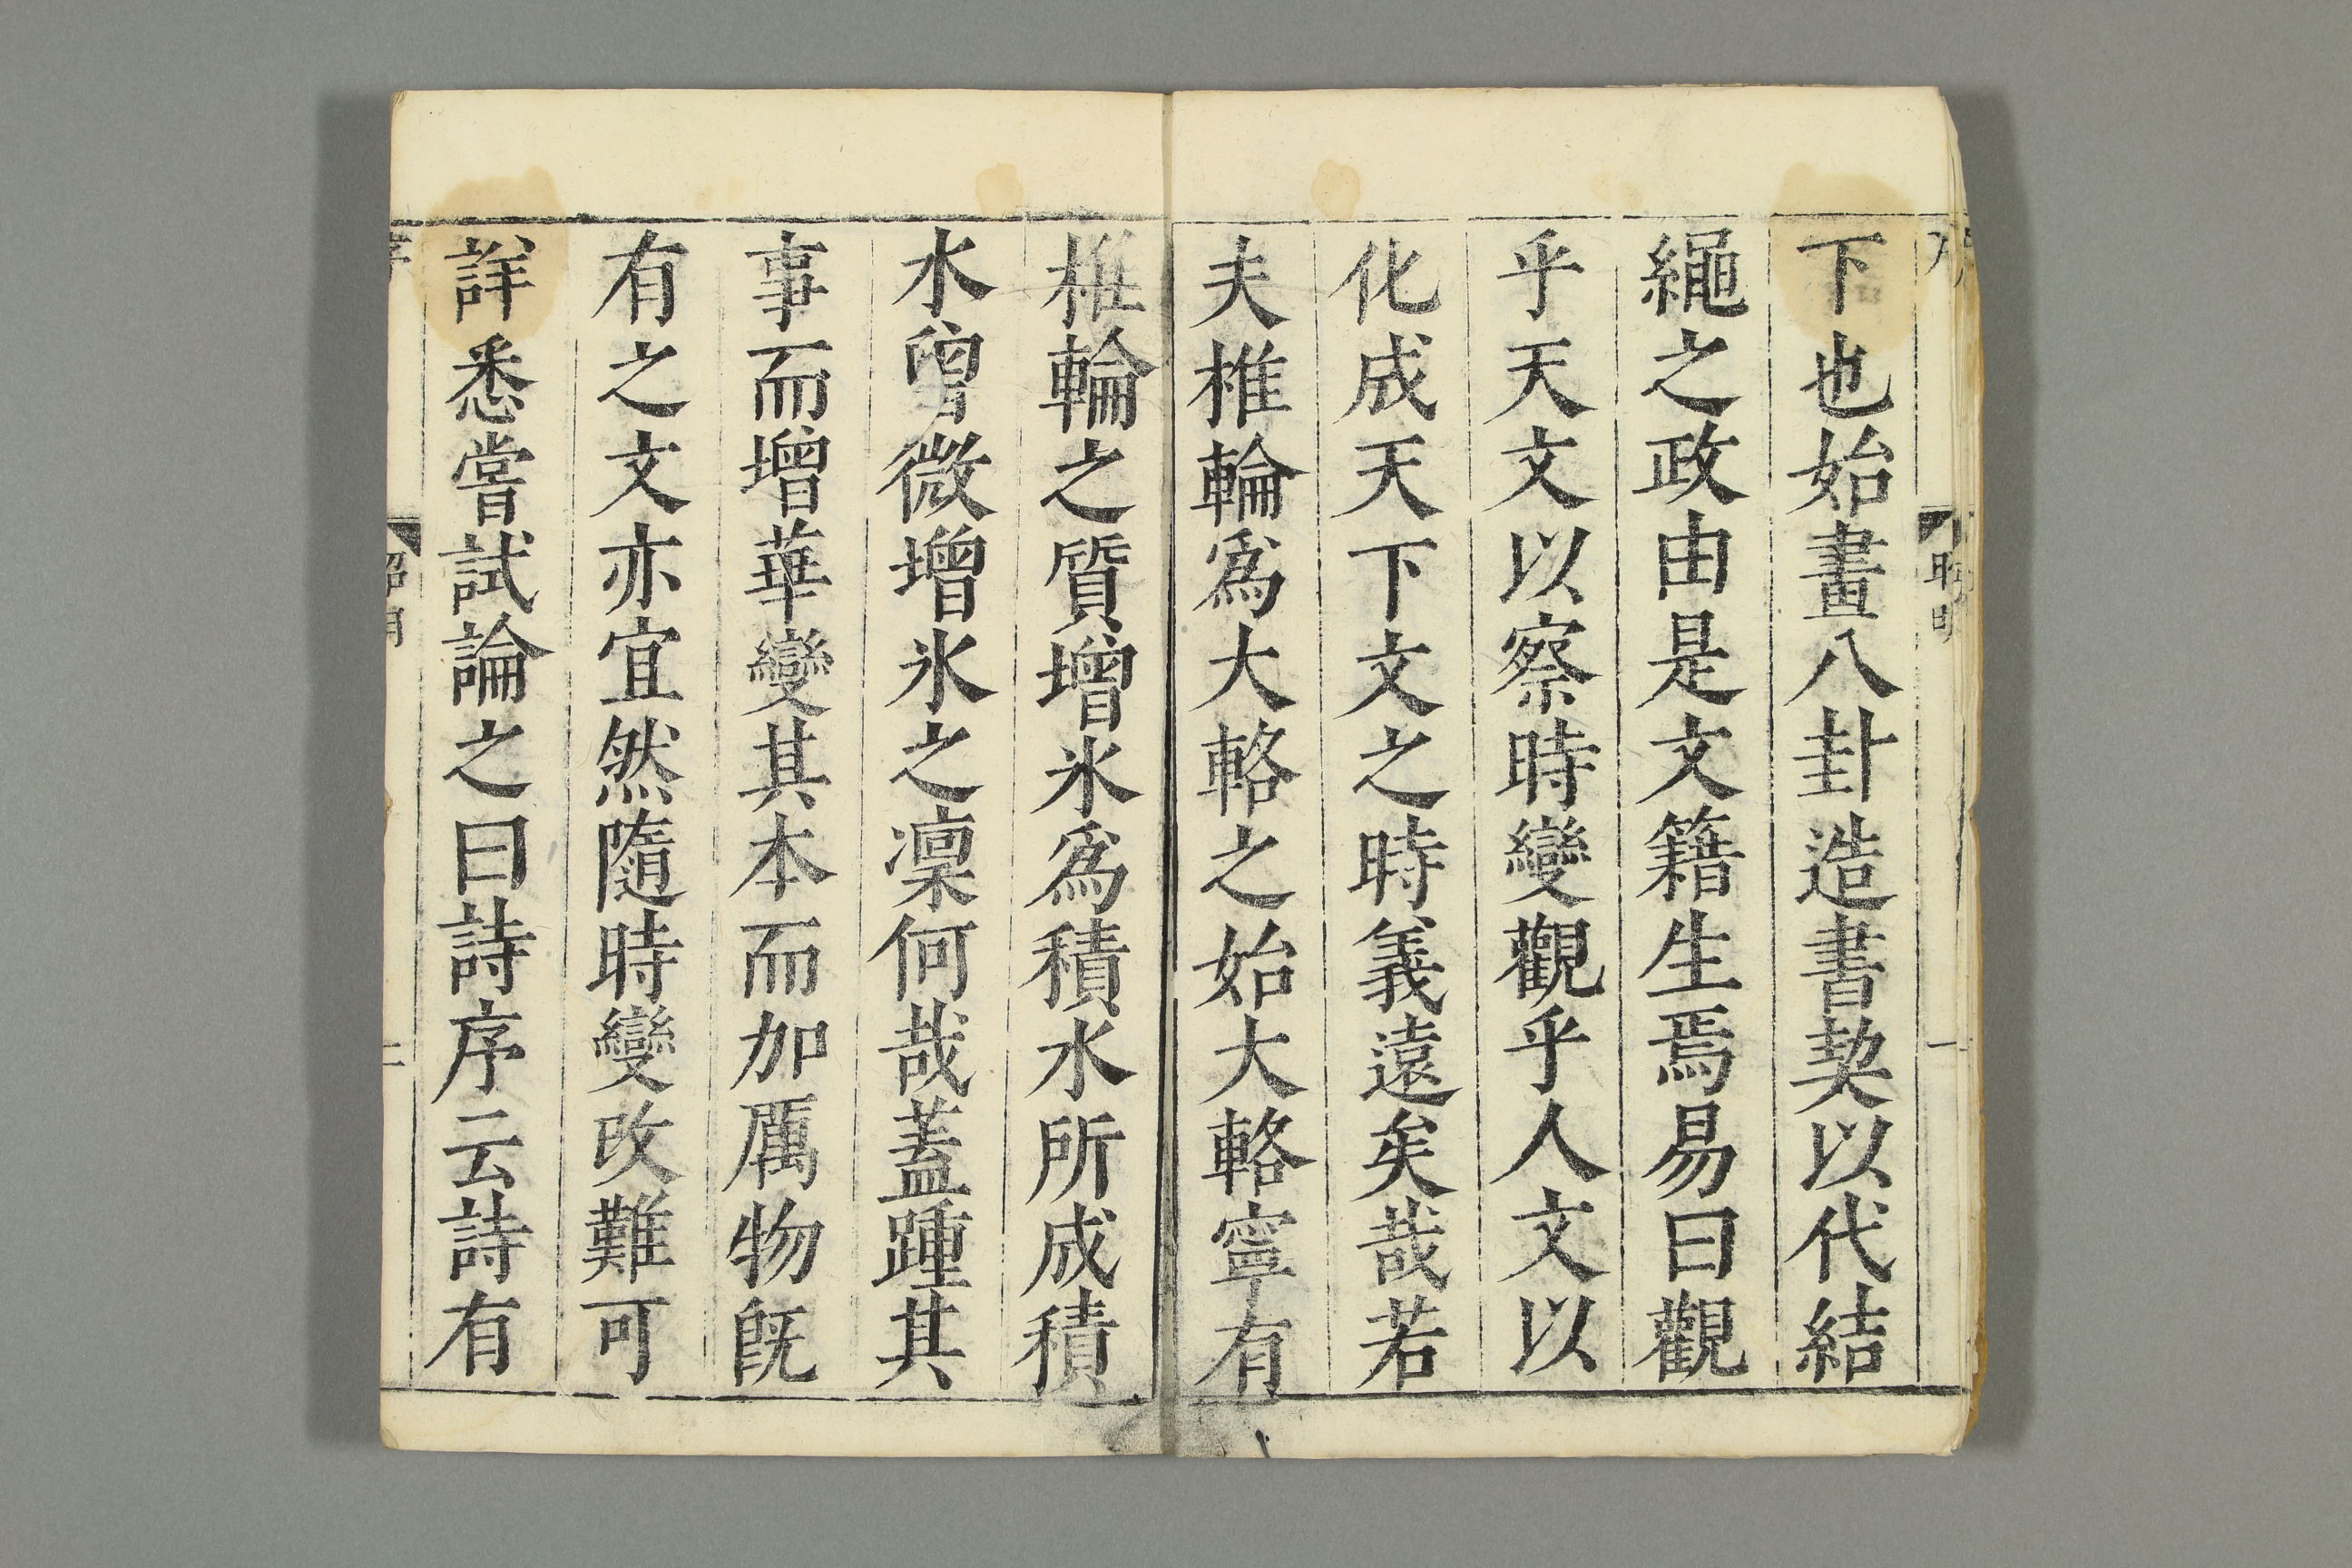 下也始畫八卦造書契以代結
繩之政由是文籍生焉易曰觀
乎天文以察時變觀乎人文以
化成天下文之時義遠矣哉若
夫椎輪爲大輅之始大輅寧有
椎輪之質增氷爲積水所成積
水曾微增氷之凜何哉蓋踵其
事而增華變其本而加厲物既
有之文亦宜然隨時變改難可
詳悉嘗試論之曰詩序云詩有